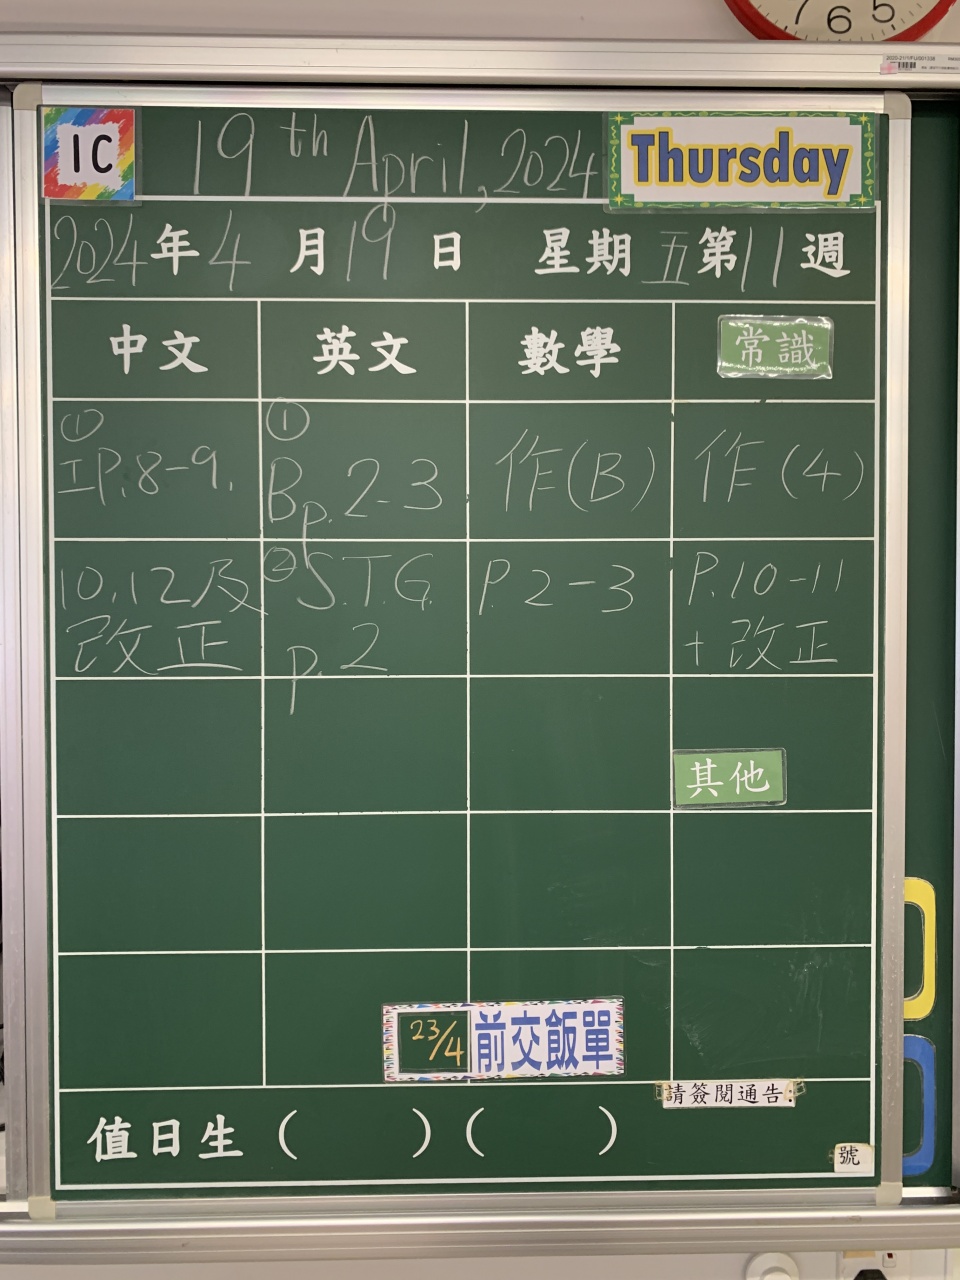 7 6 5
1C
19th April, 2024
Thursday
2024年4月19日 星期五第11週
中文 英文 數學 常識
① ①
工P.8-9. Bp.2-3 作(B) 作(4)
10,12及 ②S.T.G. P.2-3 P.10-11
改正 p.2 +改正
其他
23/4 前交飯單
請簽閱通告:
值日生( )( )
號